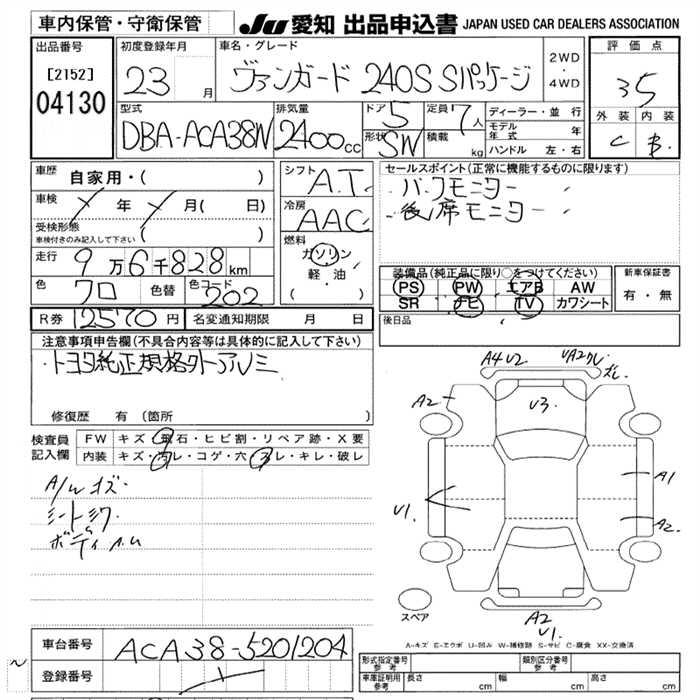 車内保管・守衛保管
JU 愛知 出品申込書 JAPAN USED CAR DEALERS ASSOCIATION
出品番号
[2152]
04130
初度登録年月
23 月
車名・グレード
ヴァンガード 240S Sパッケージ
2WD
・
4WD
評価点
35
外装 内装
C B
型式
DBA-ACA38W
排気量
2400 cc
ドア 5
形状 SW
定員 7人
積載 kg
ディーラー・並行
モデル年式 年
ハンドル 左・右
車歴
自家用・( )
車検 年 月( 日)
受検形態
車検付きのみ記入して下さい ( )
走行 9万6千828km
色 クロ 色替 色コード 202
シフト A.T.
冷房 AAC
燃料
ガソリン
軽油
( )
セールスポイント(正常に機能するものに限ります)
バックモニター
後席モニター
装備品(純正品に限り○をつけてください)
PS PW エアB AW
SR ナビ TV カワシート
新車保証書
有・無
R券 12570円 名変通知期限 月 日
後日品
注意事項申告欄(不具合内容等は具体的に記入して下さい)
・トヨタ純正規格外アルミ
修復歴 有(箇所 )
検査員記入欄
FW キズ・飛石・ヒビ割・リペア跡・X要
内装 キズ・汚レ・コゲ・穴・スレ・キレ・破レ
A/Wキズ
ボディ
A4 U2
UA2
A2
U3
A1
U1.
A2
スペア
A2
U1.
A-キズ E-エクボ U-凹み W-補修跡 S-サビ C-腐食 XX-交換済
車台番号 ACA38-5201204
登録番号
形式指定番号参考
類別区分番号参考
車庫証明用参考 長さ cm 幅 cm 高さ cm